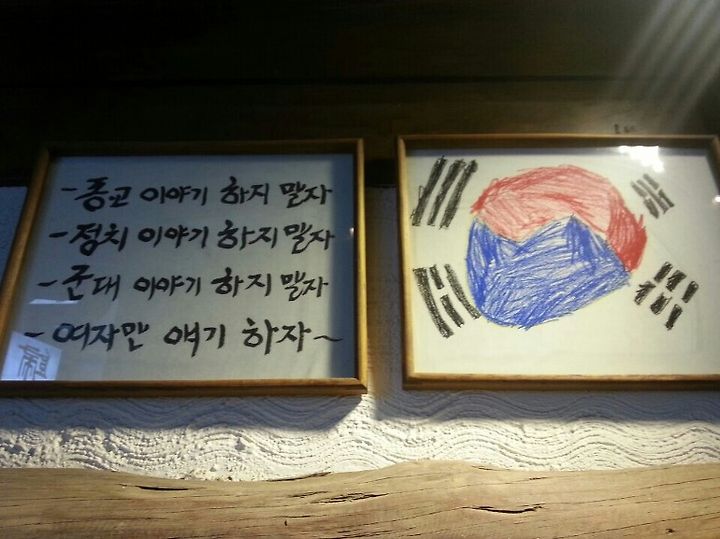 - 종교 이야기 하지 말자
- 정치 이야기 하지 말자
- 군대 이야기 하지 말자
- 여자만 얘기 하자~